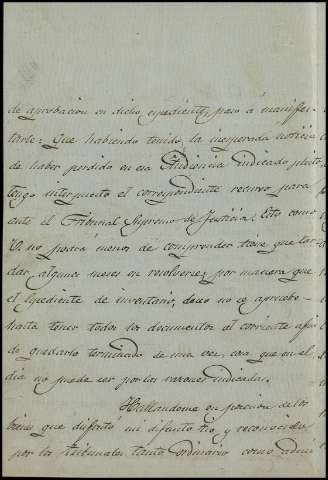 de aprobacion en dicho espediente, paso á manifes-
tarle: Que habiendo tenido la inesperada noticia
de haber perdido en esa Audiencia indicado pleito,
tengo interpuesto el correspondiente recurso para
ante el Tribunal Supremo de Justicia. Esto como
V. no podrá menos de comprender tiene que tar-
dar algunos meses en resolverse, por manera que
el Espediente de inventario, deseo no se apruebe
hasta tener todos los documentos al corriente afin
de quedarlo terminado de una vez, cosa que en el
dia no puede ser por las razones indicadas.
Hallandome en posesion de los
bienes que disfrutó mi difunto tio, y reconocido
por los tribunales tanto ordinario como admi